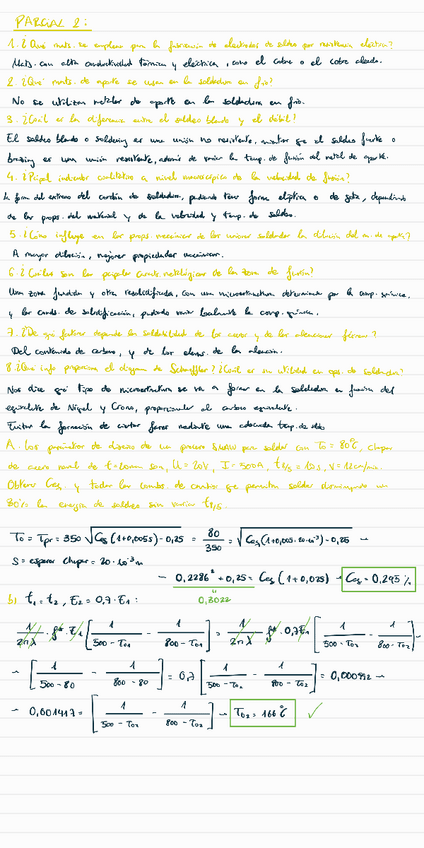 PARCIAL 2:
1. ¿Qué mats. se emplean para la fabricación de electrodos de soldeo por resistencia eléctrica?
Mats. con alta conductividad térmica y eléctrica, como el cobre o el cobre aleado.
2. ¿Qué mats. de aporte se usan en la soldadura en frío?
No se utilizan metales de aporte en la soldadura en frío.
3. ¿Cuál es la diferencia entre el soldeo blando y el débil?
El soldeo blando o soldering es una unión no resistente, mientras que el soldeo fuerte o
brazing es una unión resistente, además de variar la temp. de fusión del metal de aporte.
4. ¿Ppal indicador cualitativo a nivel macroscópico de la velocidad de fusión?
La forma del extremo del cordón de soldadura, pudiendo tener forma elíptica o de gota, dependiendo
de las props. del material y de la velocidad y temp. de soldeo.
5. ¿Cómo influye en las props mecánicas de las uniones soldadas la dilución del m. de aporte?
A mayor dilución, mejores propiedades mecánicas.
6. ¿Cuáles son las ppales caract. metalúrgicas de la zona de fusión?
Una zona fundida y otra resolidificada, con una microestructura determinada por la comp. química,
y las conds. de solidificación, pudiendo variar localmente la comp. química.
7. ¿De qué factores depende la soldabilidad de los aceros y de las aleaciones férreas?
Del contenido de carbono, y de los elems. de la aleación.
8. ¿Qué info proporciona el diagrama de Schaeffler? ¿Cuál es su utilidad en ops. de soldadura?
Nos dice qué tipo de microestructura se va a formar en la soldadura en función del
equivalente de Níquel y Cromo, proporcionales al carbono equivalente.
Evitar la formación de ciertas fases mediante una adecuada temp. de
A. Los parámetros de diseño de un proceso SMAW para soldar con T₀ = 80ºC, chapas
de acero normal de t=20mm son, U = 20V, I = 500A, t8/5 = 10s, V = 12cm/min.
Obtener Ceq y todos los cambios de que permitan soldar disminuyendo un
30% la energía de soldeo sin variar t8/5.
T₀ = Tpr = 350 √Ceq (1+0,005s) - 0,25 = 80/350 = √Ceq (1+0,005·20·10⁻³) - 0,25 →
s = espesor chapa = 20·10⁻³ m
→ 0,2286² + 0,25 = Ceq (1 + 0,025) → Ceq = 0,295 %
0,3022
b) t₁ = t₂, E₂ = 0,7·E₁:
1/2πλ · g* · E₁ [1/500 - T₀₁ - 1/800 - T₀₁] = 1/2πλ · g* · 0,7E₁ [1/500 - T₀₂ - 1/800 - T₀₂] →
→ [1/500 - 80 - 1/800 - 80] = 0,7 [1/500 - T₀₂ - 1/800 - T₀₂] = 0,000992 →
→ 0,001417 = [1/500 - T₀₂ - 1/800 - T₀₂] → T₀₂ = 166 ºC ✓